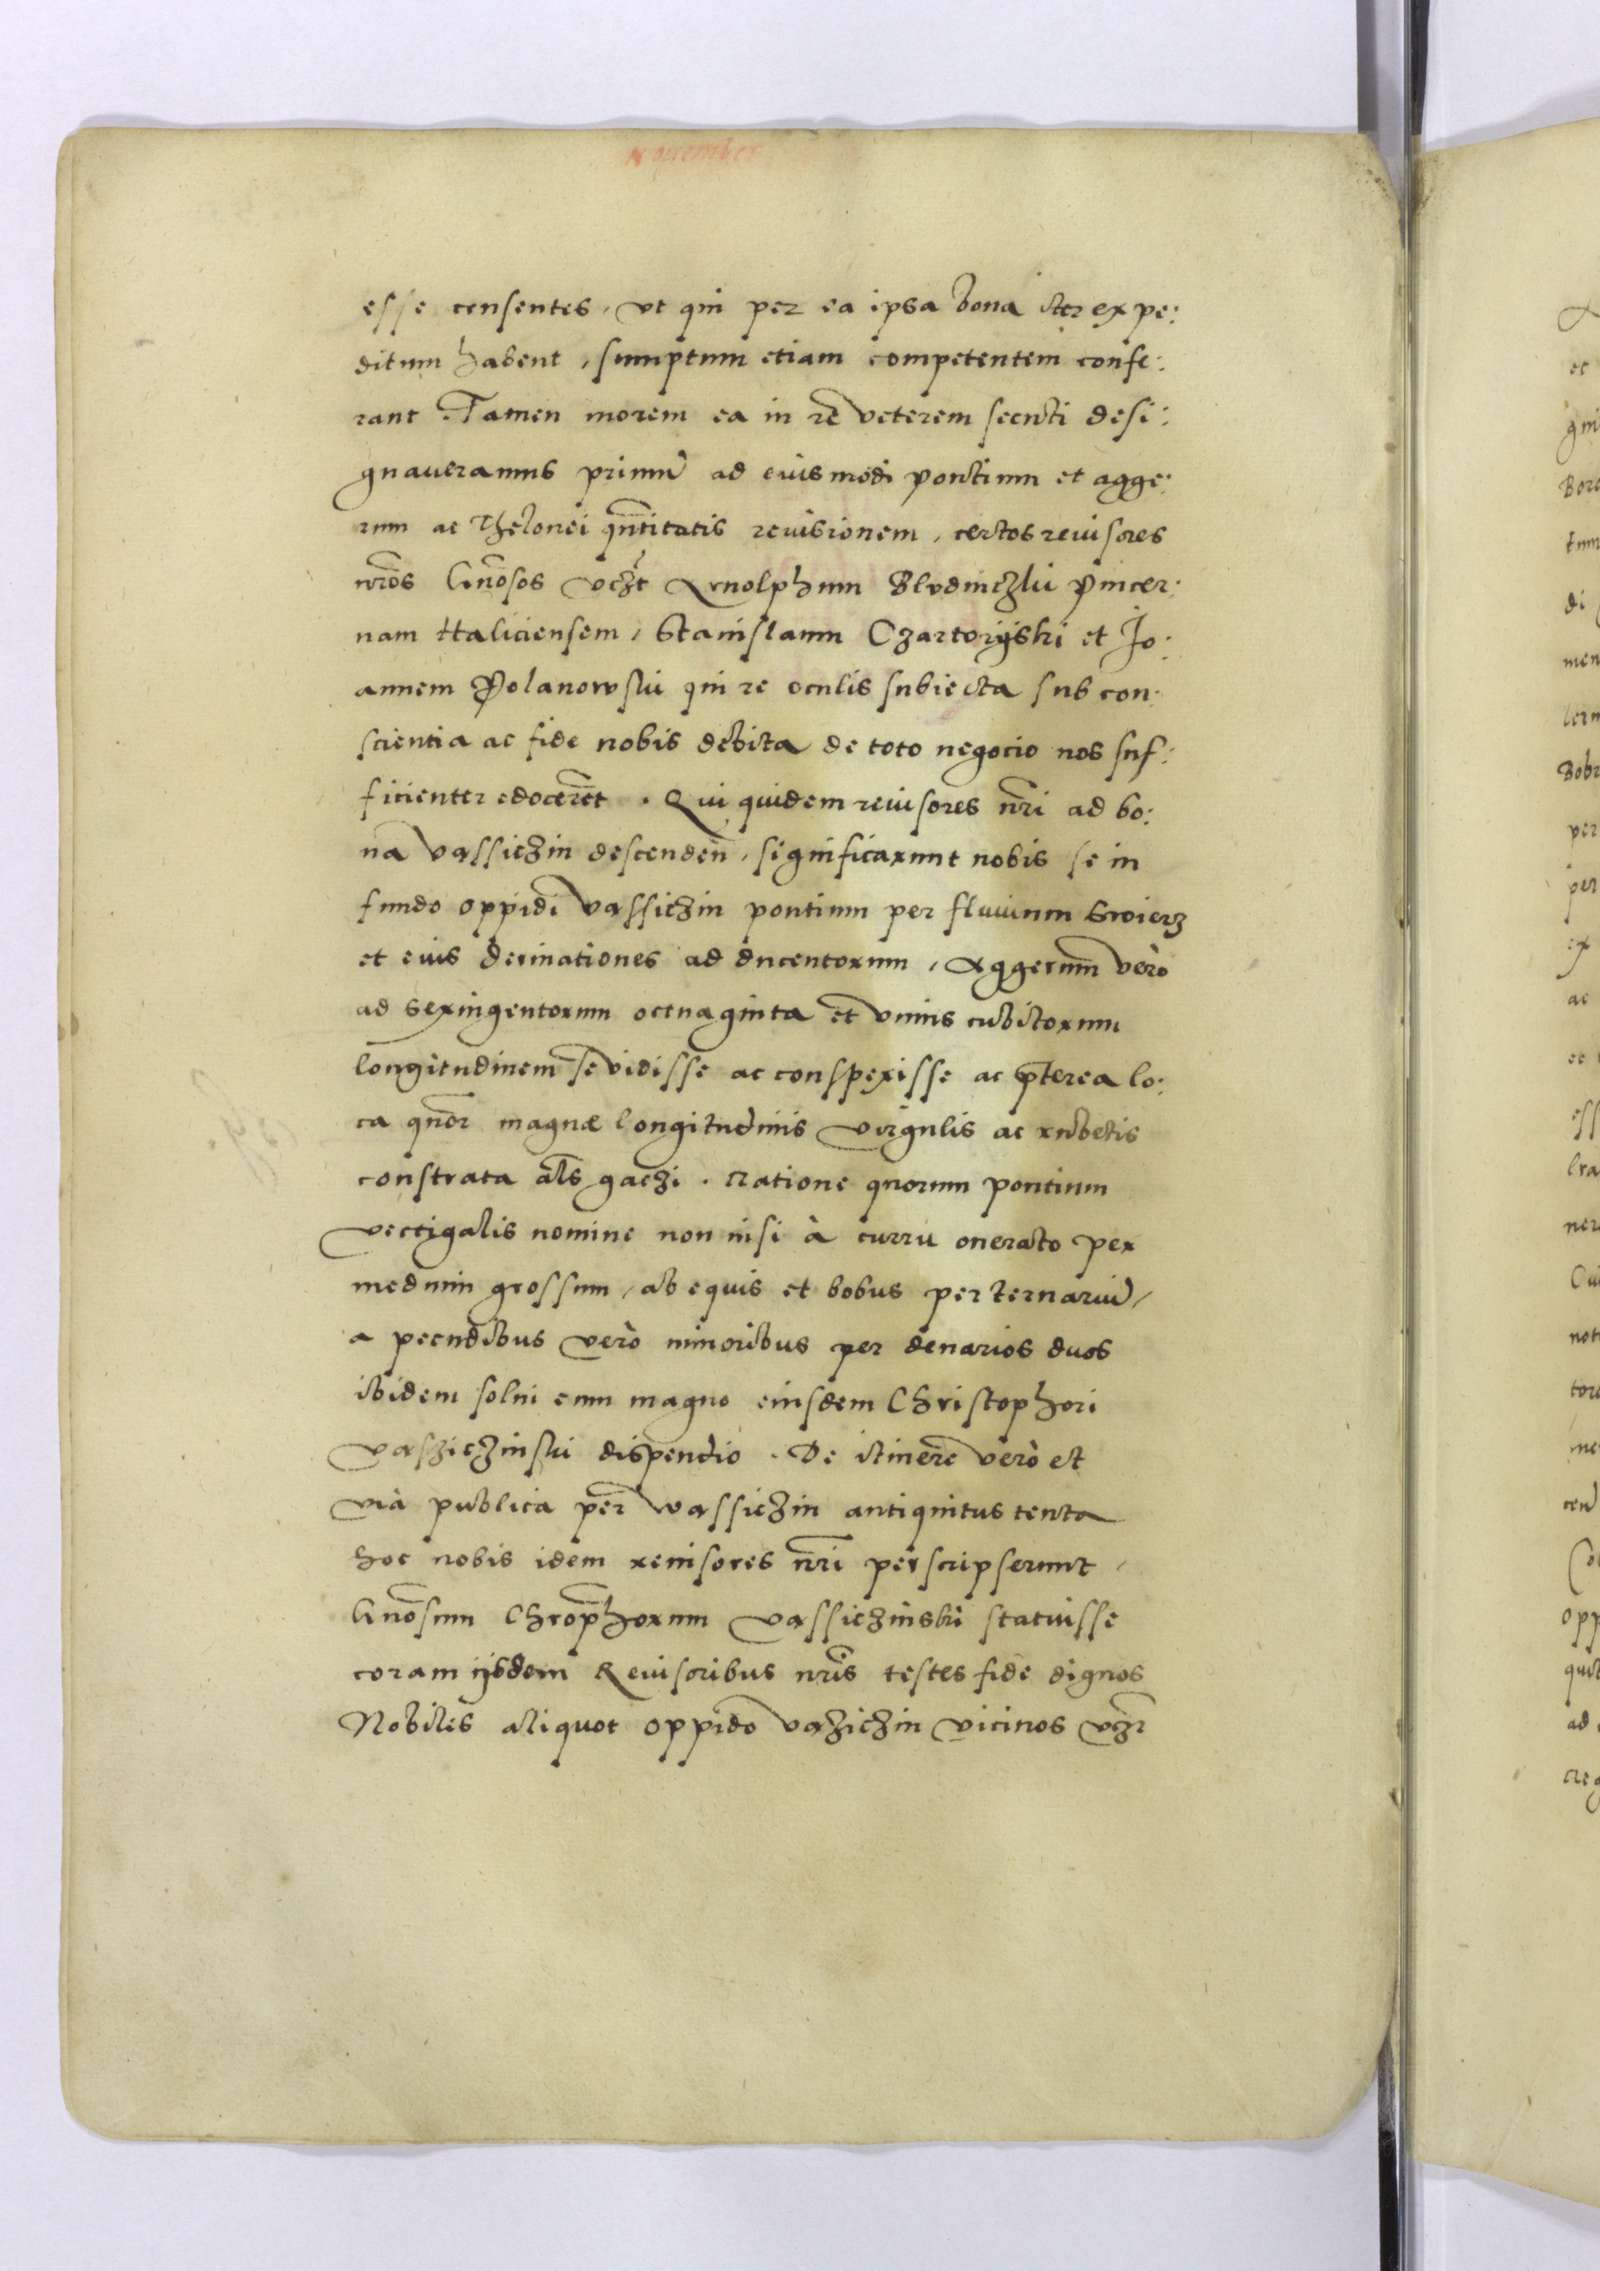 November
esse censentes, ut qui per ea ipsa bona iter expe:
ditum habent, sumptum etiam competentem confe:
rant. Tamen morem ea in re veterem secuti desi:
gnaveramus primũ ad eiusmodi pontium et agge:
rum ac Thelonei qñtitatis revisionem, certos revisores
nr̃os Gñosos vcz̃t Arnolphum Blvdniczki Pincer:
nam Haliciensem, Stanislaum Czartoriÿski et Jo:
annem Polanowski qui re oculis subiecta sub con:
scientia ac fide nobis debita de toto negocio nos suf:
ficienter edocerẽt. Qui quidem revisores nr̃i ad bo:
na Vassiczin descendeñ, significarunt nobis se in
fundo oppidi Vassiczin pontium per fluvium Swierz
et eius derivationes ad ducentorum, Aggerum vero
ad sexingentorum octuaginta et unius cubitorum
longitudinem se vidisse ac conspexisse ac p̃terea lo:
ca quor̃ magnæ longitudinis virgulis ac rubetis
constrata al̃s gaczi. Ratione quorum pontium
vectigalis nomine non nisi à curru onerato per
medium grossum, ab equis et bobus per ternariũ,
a pecudibus vero minoribus per denarios duos
ibidem solvi cum magno eiusdem Christophori
Vasziczinski dispendio. De itinere vero et
via publica per Wassiczin antiquitus tenta
hoc nobis idem revisores nr̃i perscripserunt,
Gñosum Chr̃ophorum Vassiczinski statuisse
coram iisdem Revisoribus nr̃is testes fide dignos
Nobiles aliquot oppido Vaziczin vicinos vcz̃